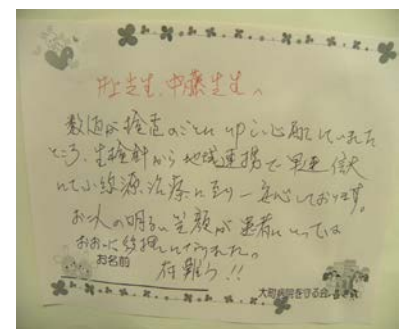 井上先生、中藤先生へ
数値が検査のごとに up し心配していました
ところ、生検針から地域連携で 信大
にて小線源治療に至り一安心しております。
お二人の明るい笑顔が患者にとっては
おおいに なりました。
お名前 有難う!!
大町病院を守る会